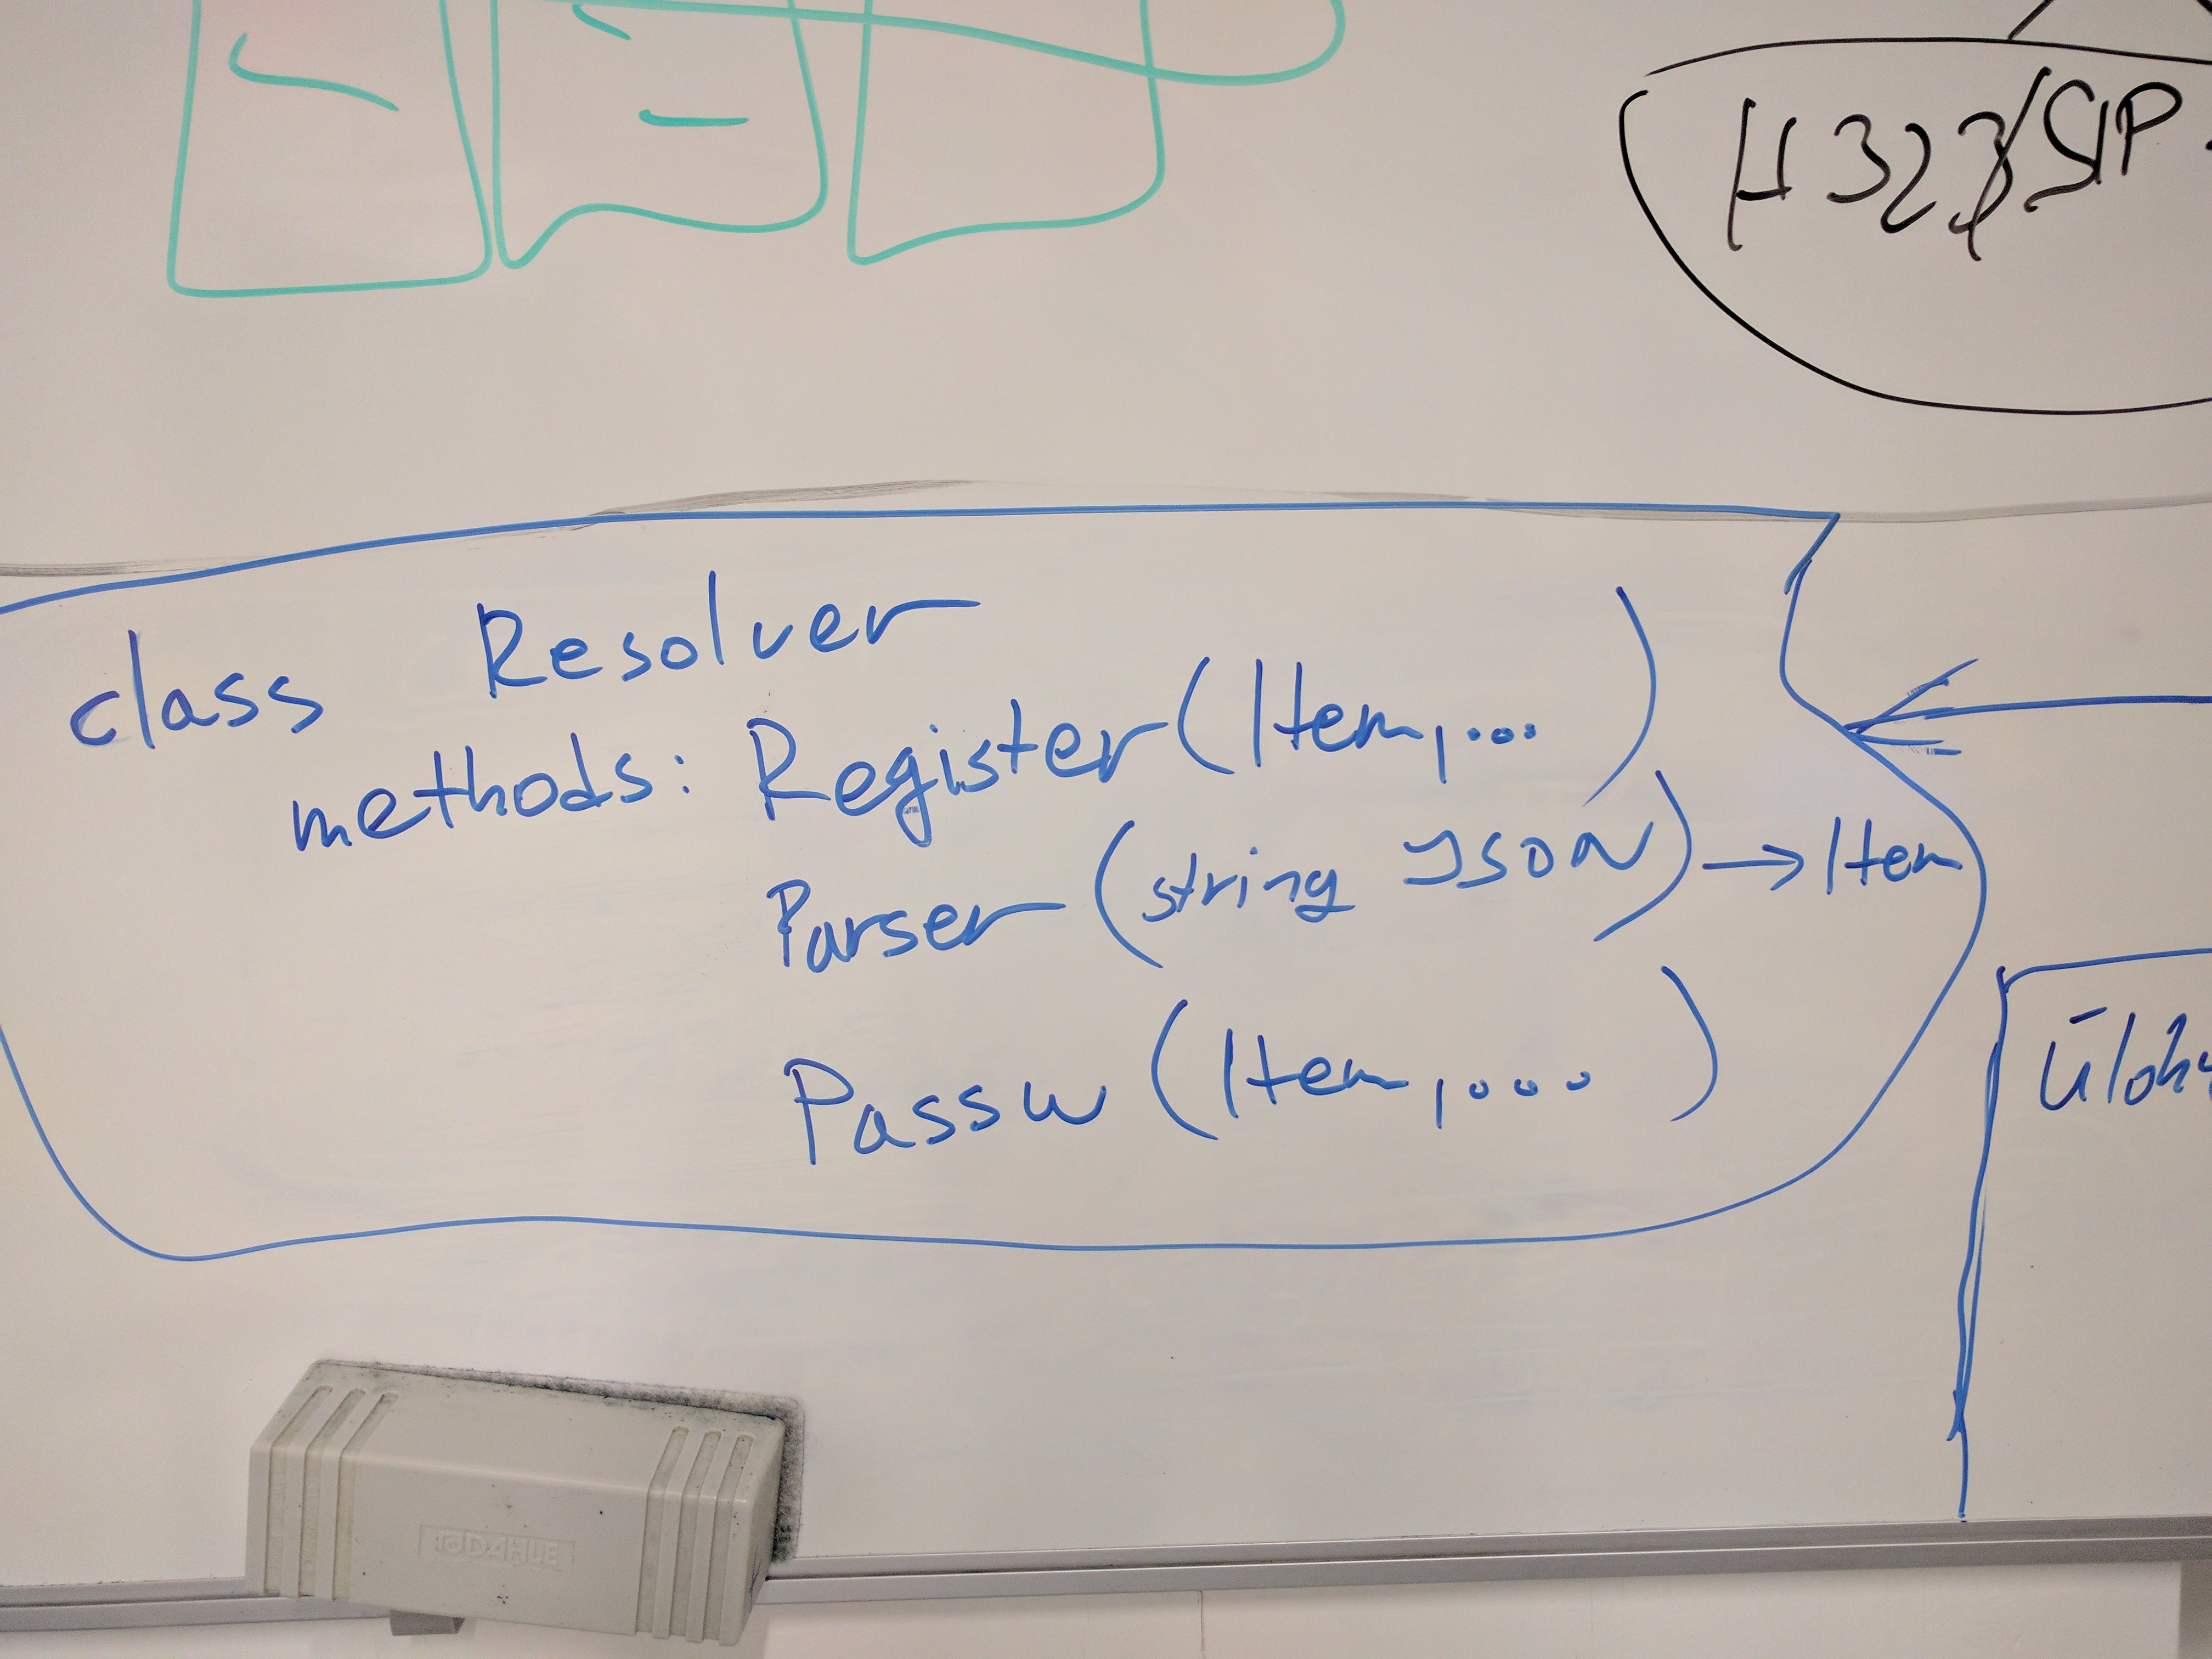 H323/SIP
class Resolver
methods: Register(Item,...)
Parser(string JSON) → Item
Passw(Item,....)
DAHLE